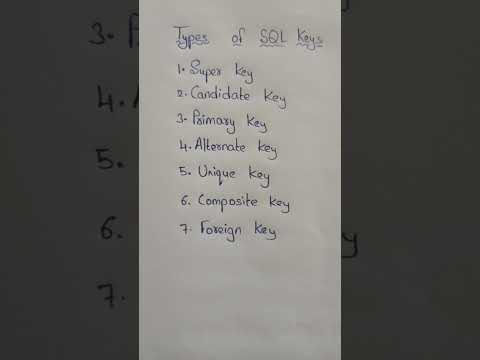 Types of SQL Keys
1. Super key
2. Candidate key
3. Primary key
4. Alternate key
5. Unique key
6. Composite key
7. Foreign key